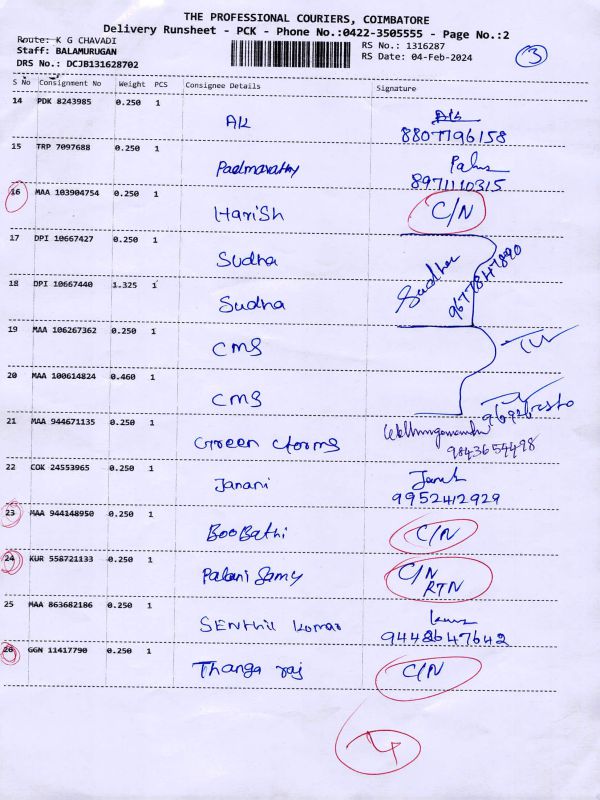 THE PROFESSIONAL COURIERS, COIMBATORE
Delivery Runsheet - PCK - Phone No.:0422-3505555 - Page No.:2
Route: K G CHAVADI
Staff: BALAMURUGAN
DRS No.: DCJB131628702
RS No.: 1316287
RS Date: 04-Feb-2024
3
S No Consignment No Weight PCS Consignee Details Signature
14 PDK 8243985 0.250 1 AK AK
8807796158
15 TRP 7097688 0.250 1 Padmavathy
8971110315
16 MAA 103904754 0.250 1 HariSh C/N
17 DPI 10667427 0.250 1 Sudha
Sudha 9677847890
18 DPI 10667440 1.325 1 Sudha
19 MAA 106267362 0.250 1 CMS
20 MAA 100614824 0.460 1 CMS
21 MAA 944671135 0.250 1 Green
9843654498
22 COK 24553965 0.250 1 Janani
9952412929
23 MAA 944148950 0.250 1 BooBathi C/N
24 KUR 558721133 0.250 1 Palani Samy C/N
RTN
25 MAA 863682186 0.250 1 SENthil kumar
9442647642
26 GGN 11417790 0.250 1 Thanga raj C/N
4